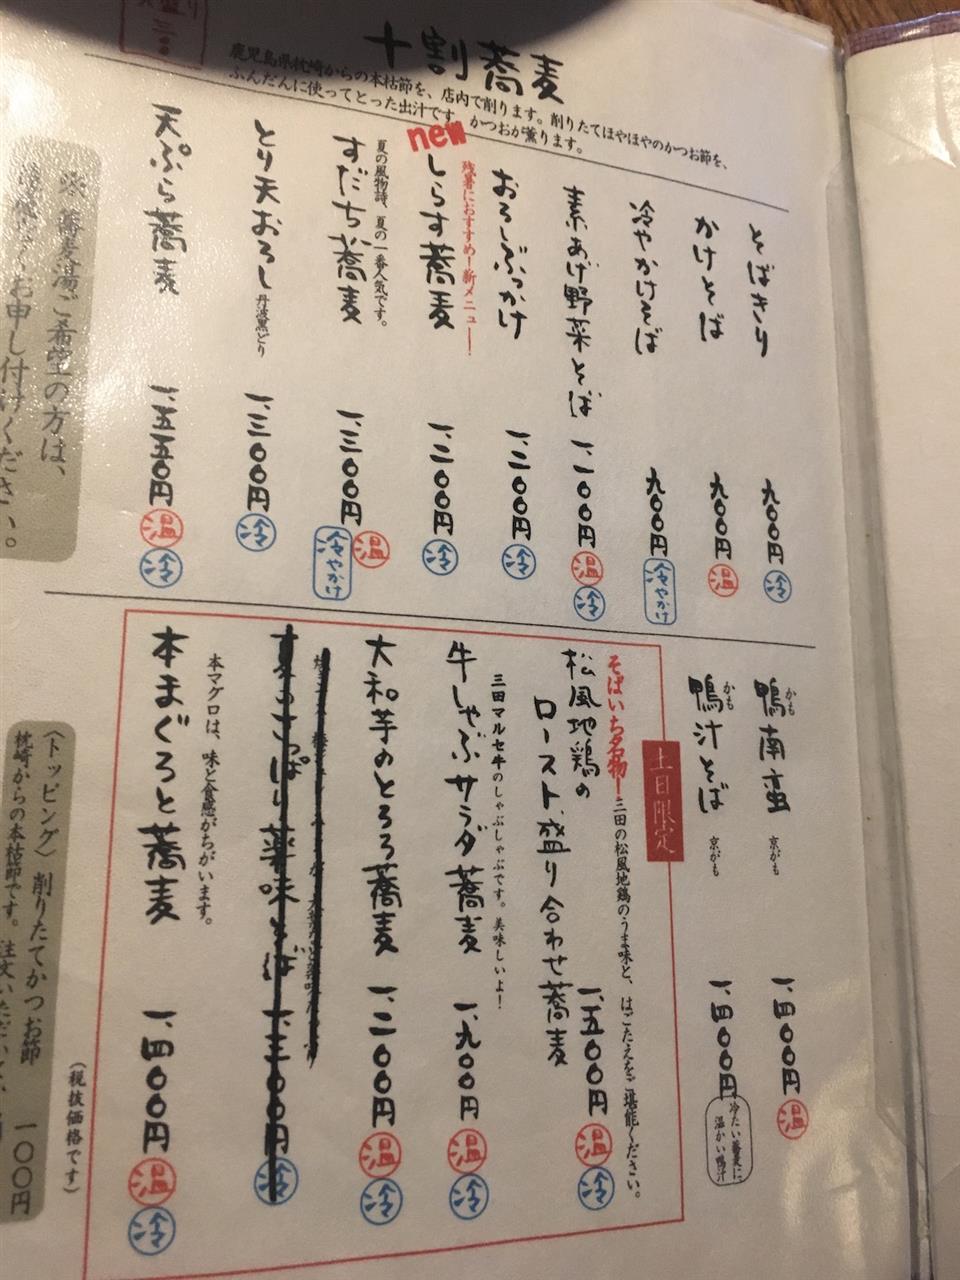 十割蕎麦
鹿児島県枕崎からの本枯節を、店内で削ります。削りたてほやほやのかつお節を、
ふんだんに使ってとった出汁です。かつおが薫ります。
そばきり 九00円 冷
かけそば 九00円 温
冷やかけそば 九00円 冷やかけ
素あげ野菜そば 一、一00円 温 冷
おろしぶっかけ 一、二00円 冷
残暑におすすめ!新メニュー!
new
しらす蕎麦 一、二00円 冷
夏の風物詩、夏の一番人気です。
すだち蕎麦 一、三00円 温 冷やかけ
とり天おろし 丹波黒どり 一、三00円 冷
天ぷら蕎麦 一、五五0円 温 冷
※蕎麦湯ご希望の方は、
お申し付けください。
鴨南蛮 かも 京がも 一、四00円 温
鴨汁そば かも 京がも 一、四00円 冷たい蕎麦に
温かい鴨汁
土日限定
そばいち名物!三田の松風地鶏のうま味と、はごたえをご堪能ください。
松風地鶏の
ロースト盛り合わせ蕎麦 一、五00円 温 冷
三田マルセ牛のしゃぶしゃぶです。美味しいよ!
牛しゃぶサラダ蕎麦 一、九00円 温 冷
大和芋のとろろ蕎麦 一、二00円 温 冷
夏のさっぱり薬味そば 一、三00円 冷
本マグロは、味と食感がちがいます。
本まぐろと蕎麦 一、四00円 温 冷
(税抜価格です)
〈トッピング〉削りたてかつお節 一〇〇円
枕崎からの本枯節です。注文いただいて、